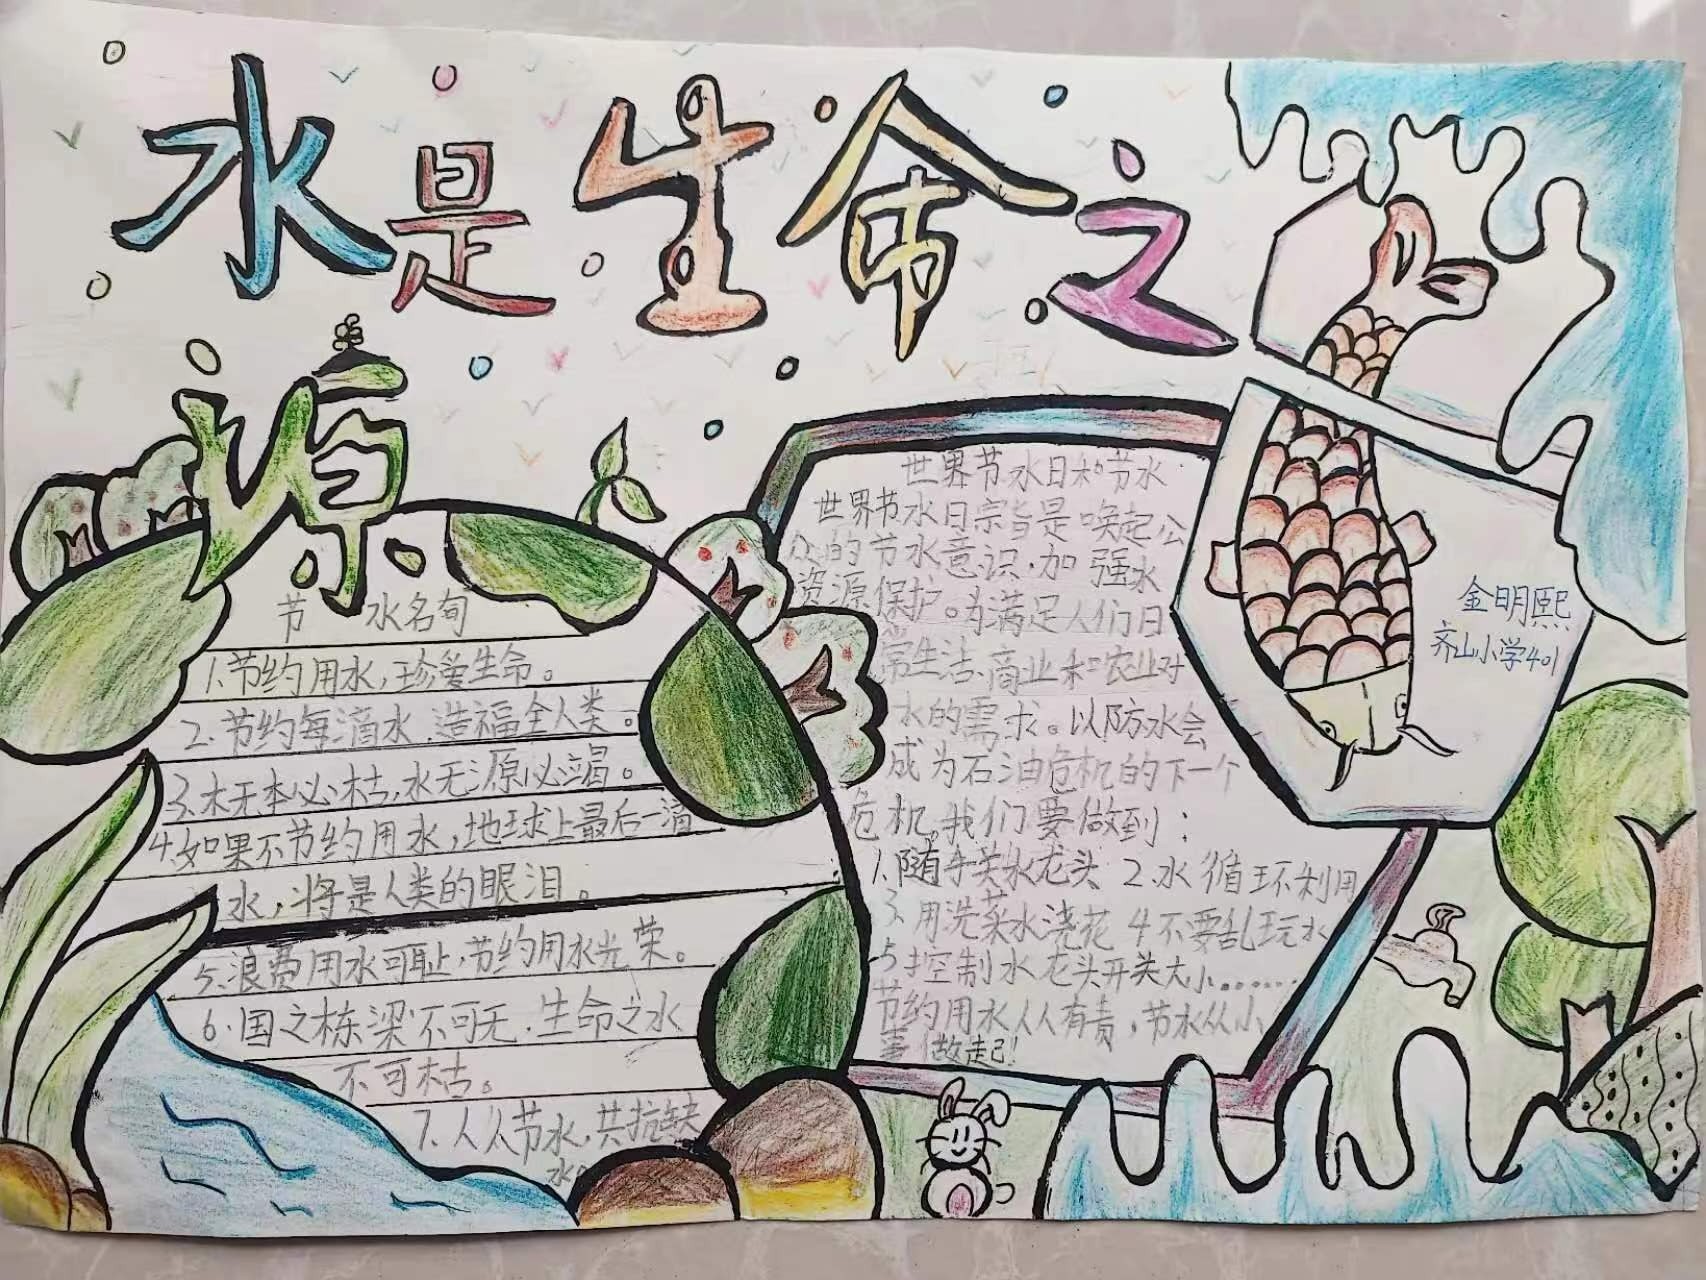 水是生命之
源
节水名句
1.节约用水，珍爱生命。
2.节约每滴水.造福全人类。
3.木无本必枯，水无源必竭。
4.如果不节约用水，地球上最后一滴
水，将是人类的眼泪。
5.浪费用水可耻，节约用水光荣。
6.国之栋梁不可无.生命之水
不可枯。
7.人人节水，共抗缺
水
世界节水日和节水
世界节水日宗旨是唤起公
众的节水意识，加强水
资源保护。为满足人们日
常生活、商业和农业对
水的需求。以防水会
成为石油危机的下一个
危机。我们要做到：
1.随手关水龙头 2.水循环利用
3.用洗菜水浇花 4不要乱玩水
5控制水龙头开关大小……
节约用水人人有责，节水从小
事做起！
金明熙
齐山小学401